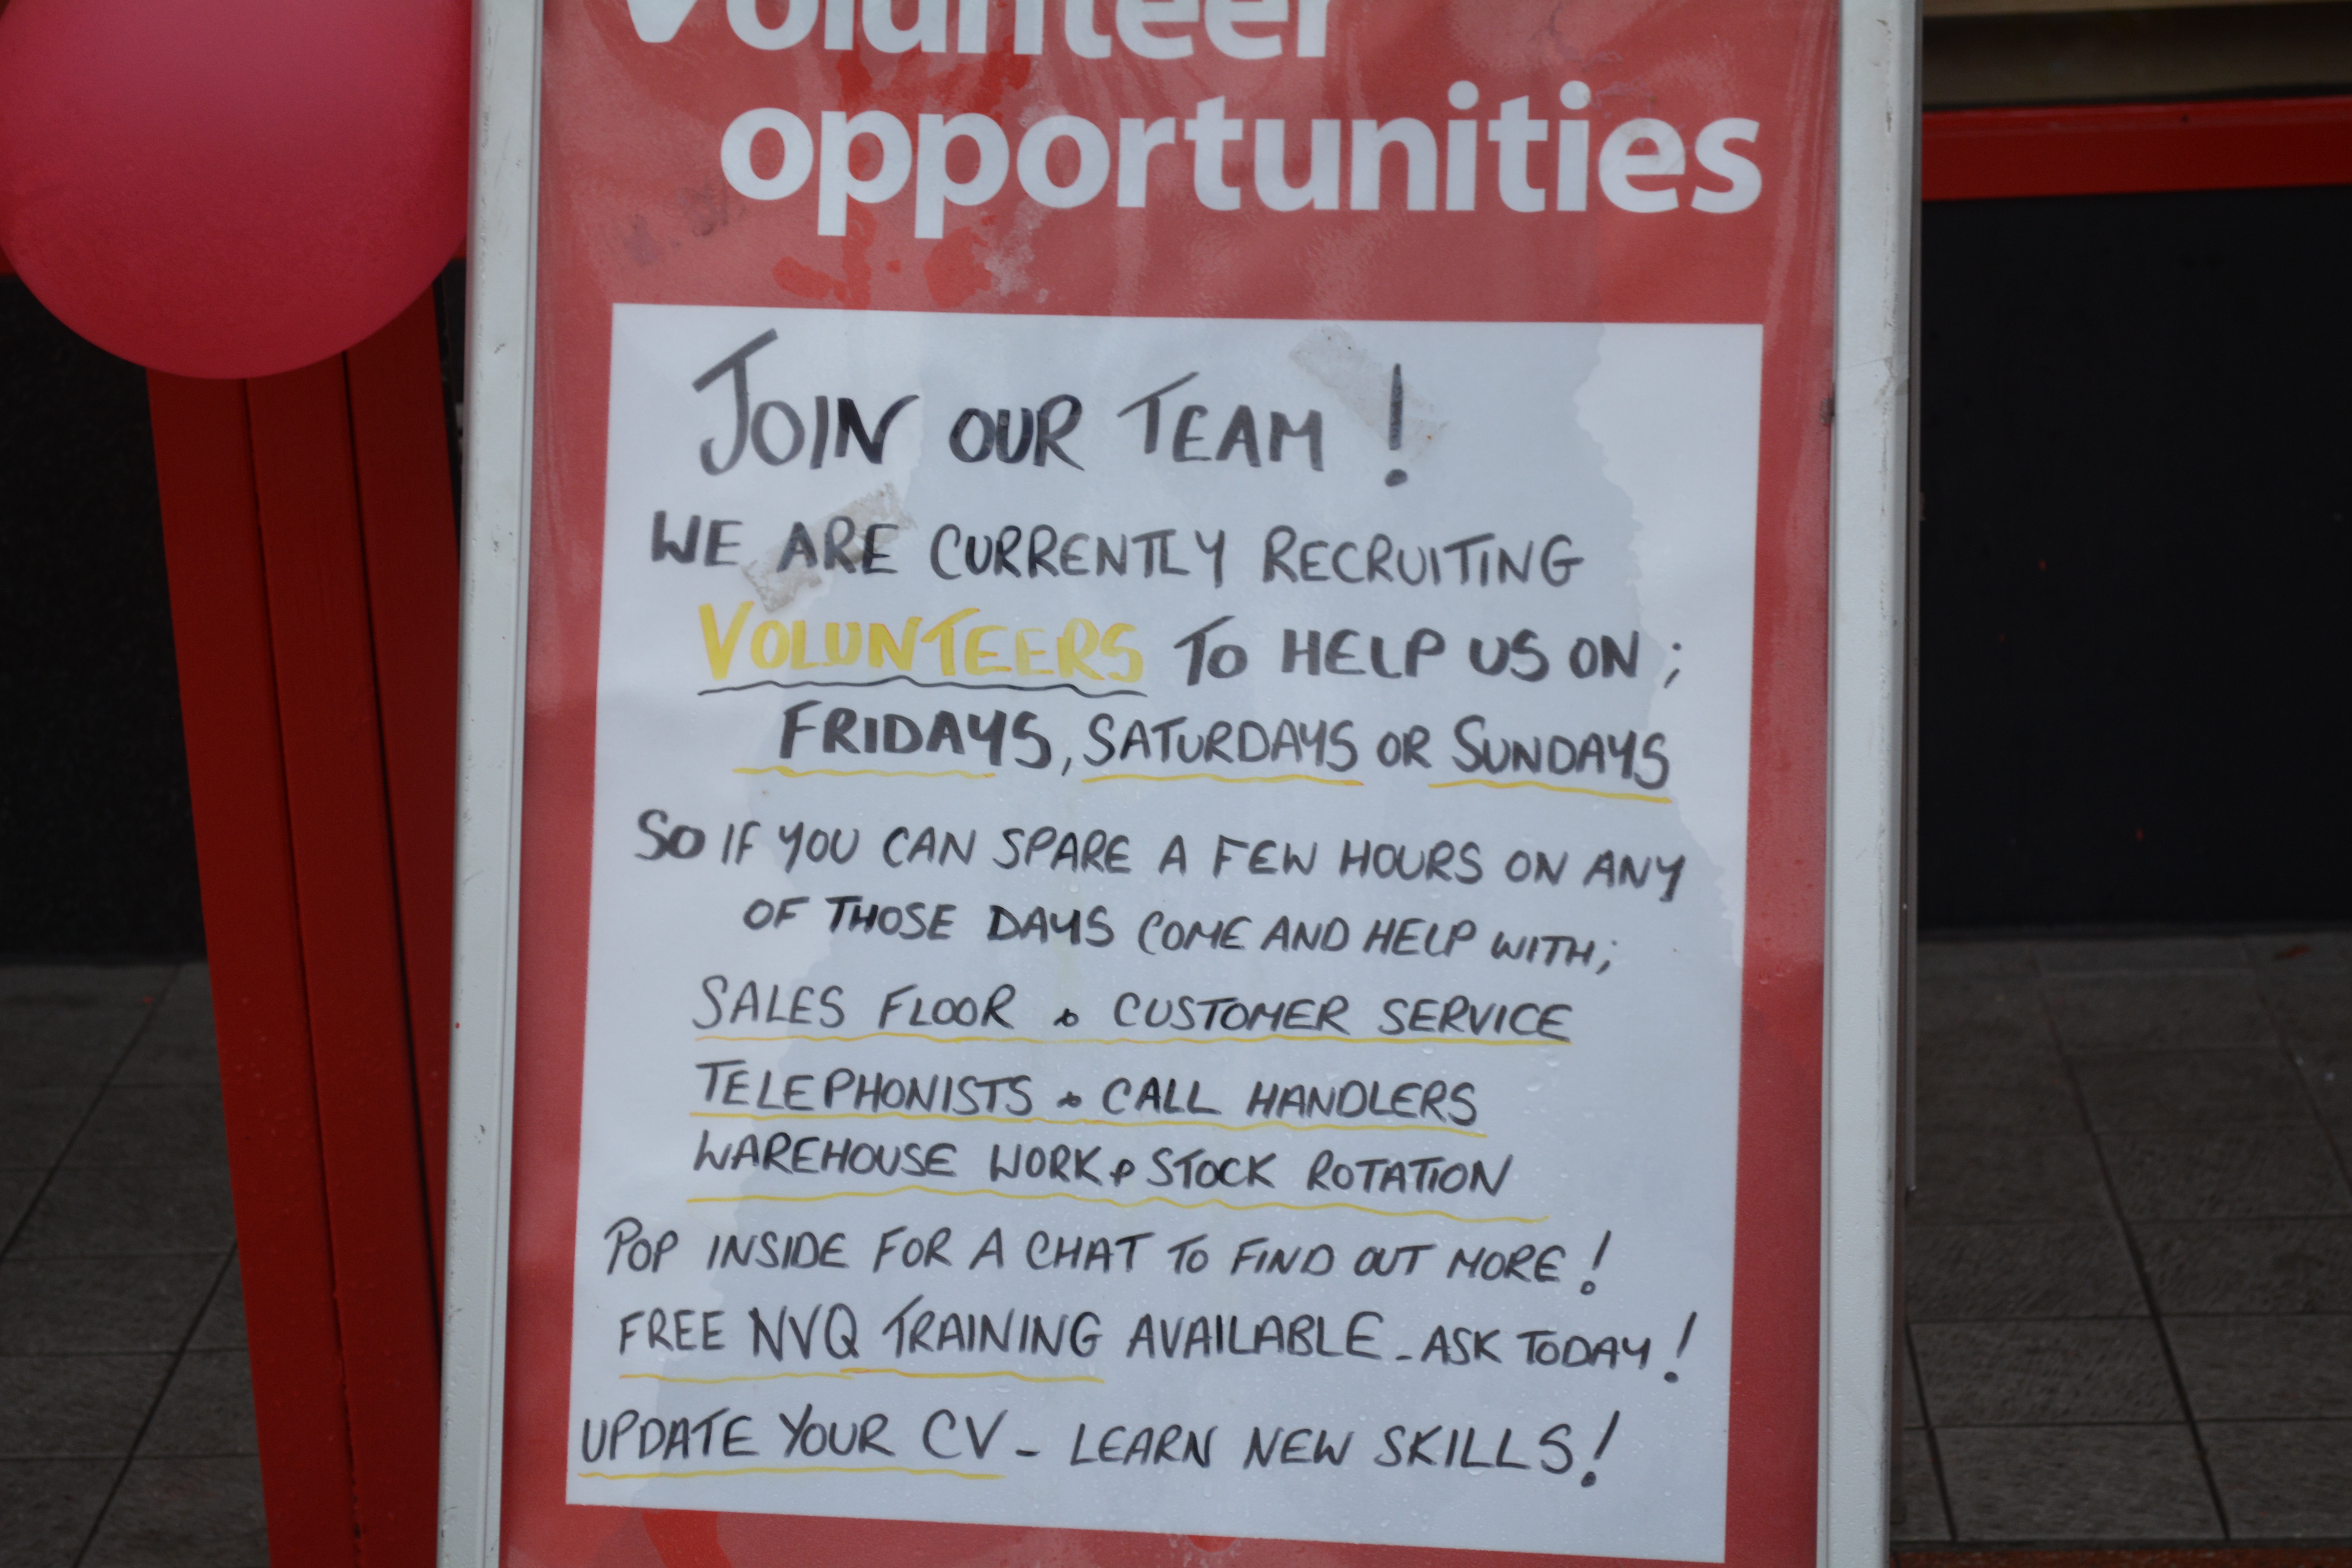 Volunteer
opportunities
JOIN OUR TEAM!
WE ARE CURRENTLY RECRUITING
VOLUNTEERS TO HELP US ON;
FRIDAYS, SATURDAYS OR SUNDAYS
SO IF YOU CAN SPARE A FEW HOURS ON ANY
OF THOSE DAYS COME AND HELP WITH;
SALES FLOOR & CUSTOMER SERVICE
TELEPHONISTS & CALL HANDLERS
WAREHOUSE WORK & STOCK ROTATION
POP INSIDE FOR A CHAT TO FIND OUT MORE!
FREE NVQ TRAINING AVAILABLE - ASK TODAY!
UPDATE YOUR CV - LEARN NEW SKILLS!